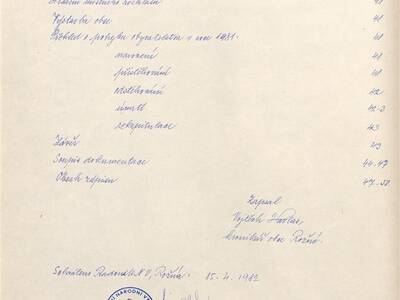 Hlášení místního rozhlasu 41
Výstavba obce 41
Přehled o pohybu obyvatelstva v roce 1981: 41
narození 41
přistěhování 41
odstěhování 42
úmrtí 42-3
rekapitulace 43
Závěr 43
Soupis dokumentace 44-47
Obsah zápisu 47-50
Zapsal
Vojtěch
kronikář obce Rožná
Schváleno Radou MNV, Rožná: 15.4.1982
NÁRODNÍ